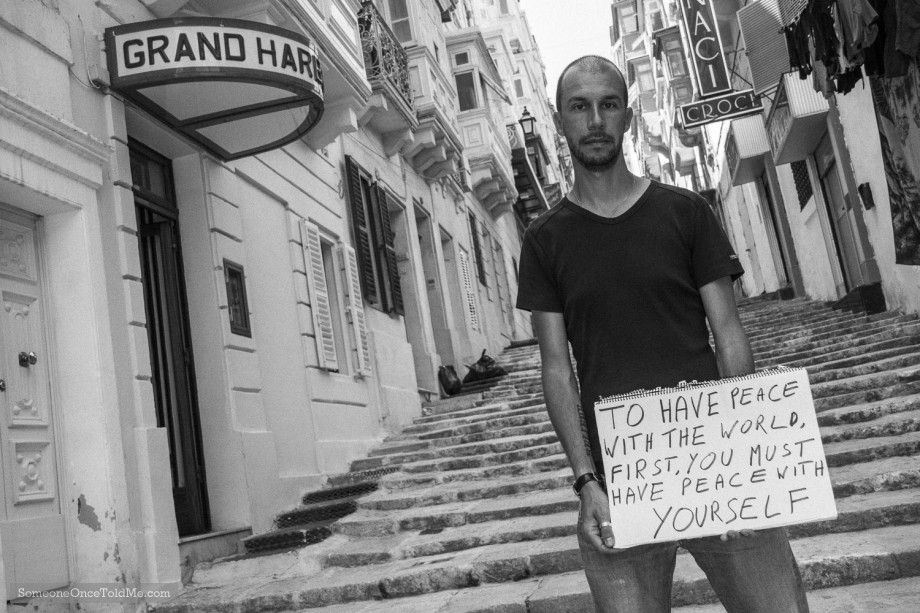 GRAND HAR
NACI
CROCI
TO HAVE PEACE
WITH THE WORLD,
FIRST, YOU MUST
HAVE PEACE WITH
YOURSELF
SomeoneOnceToldMe.com